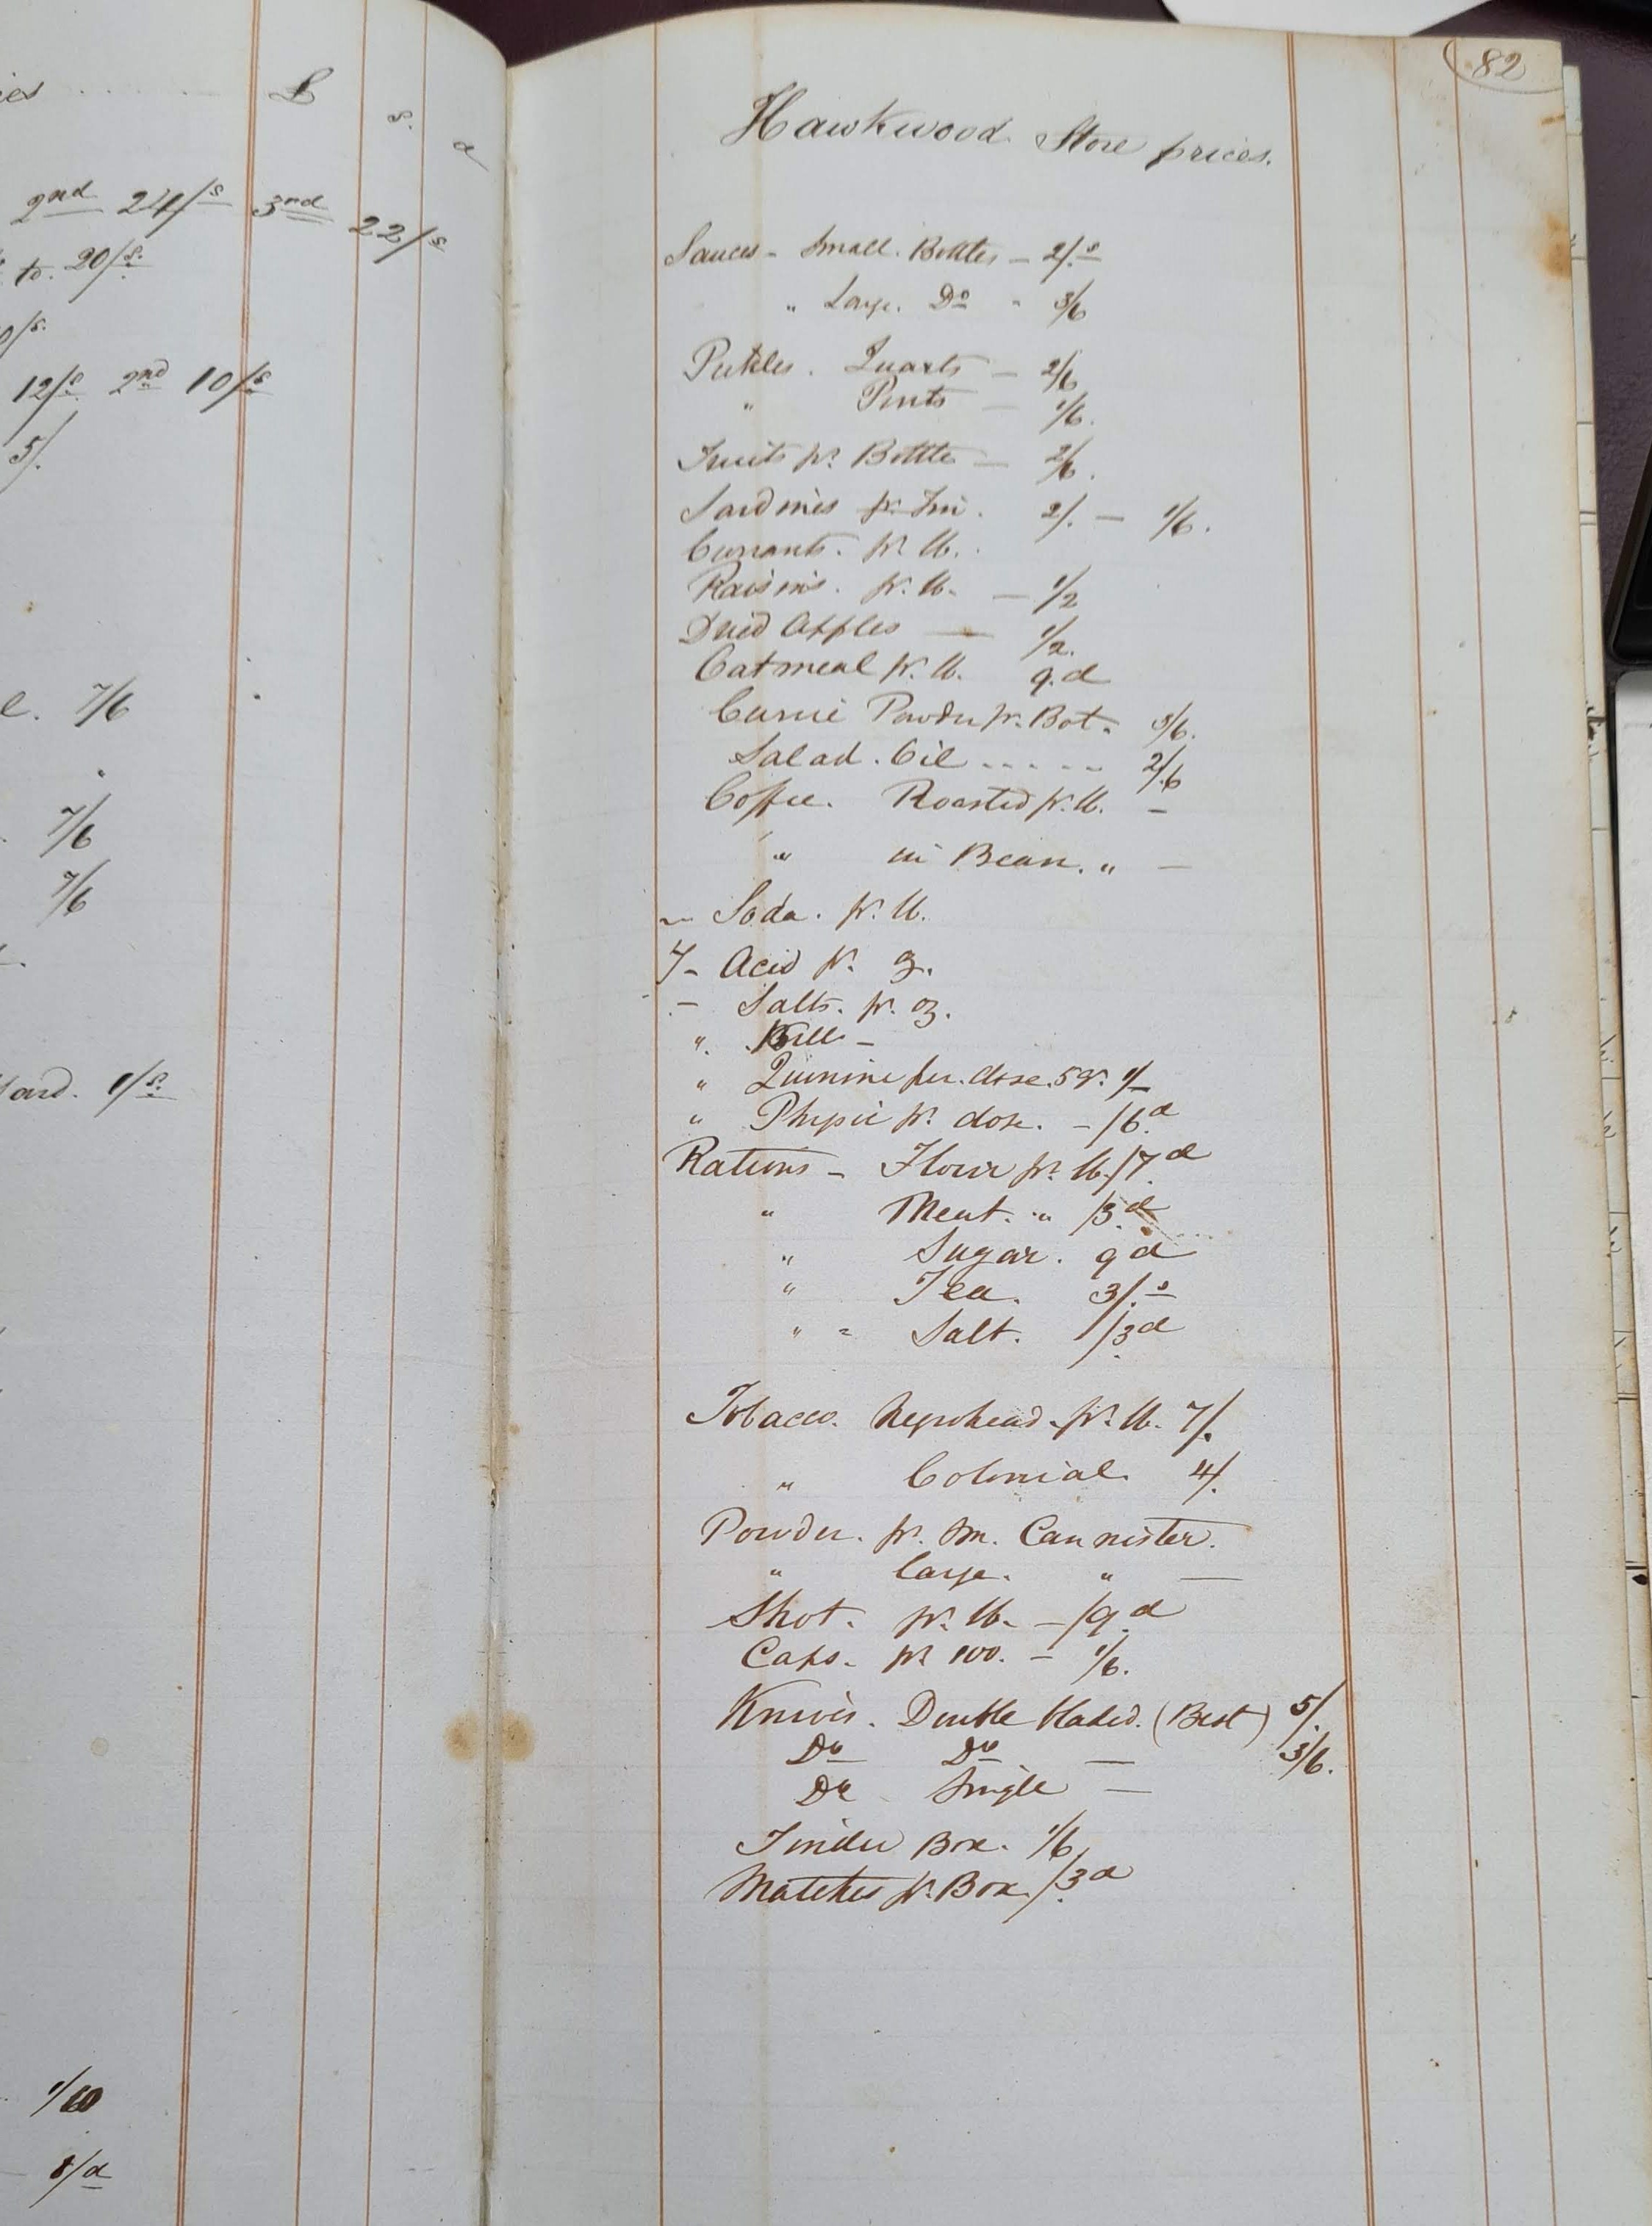 £ s. d
2nd 24/s 3rd 22/s
to. 20/s.
12/s. 2nd 10/s
5/.
7/6
7/6
7/6
1/s.
82
Hawkwood Store prices.
Sauces - Small. Bottles - 2/.s
" Large. Do " 3/6
Pickles. Quarts - 2/6
" Pints - 1/6.
Fruits pr. Bottle - 2/6.
Sardines pr. Tin. 2/. - 1/6.
Currants. pr. lb.
Raisins. pr. lb. - 1/2
Dried Apples - 1/2.
Oatmeal pr. lb. 9.d
Currie Powder pr. Bot. 3/6.
Salad. Oil ..... 2/.6
Coffee. Roasted pr. lb. -
" in Bean. " -
Soda. pr. lb.
T- Acid pr. oz.
- Salts. pr. oz.
". Pills -
" Quinine per. dose. 5 gr. 1/-
" Physic pr. dose. - /6.d
Rations - Flour pr. lb. /7.d
" Meat. " /3.d
" Sugar. 9d
" Tea. 3/.s
" " Salt. /3d
Tobacco. Negrohead. pr. lb. 7/.
" Colonial. 4/.
Powder. pr. Sm. Cannister.
" large. " -
Shot. pr. lb. - /9.d
Caps. pr 100. - 1/6.
Knives. Double bladed. (Best) 5/.
Do Do - 3/6.
Do Single -
Tinder Box. 1/6
Matches pr. Box /3d